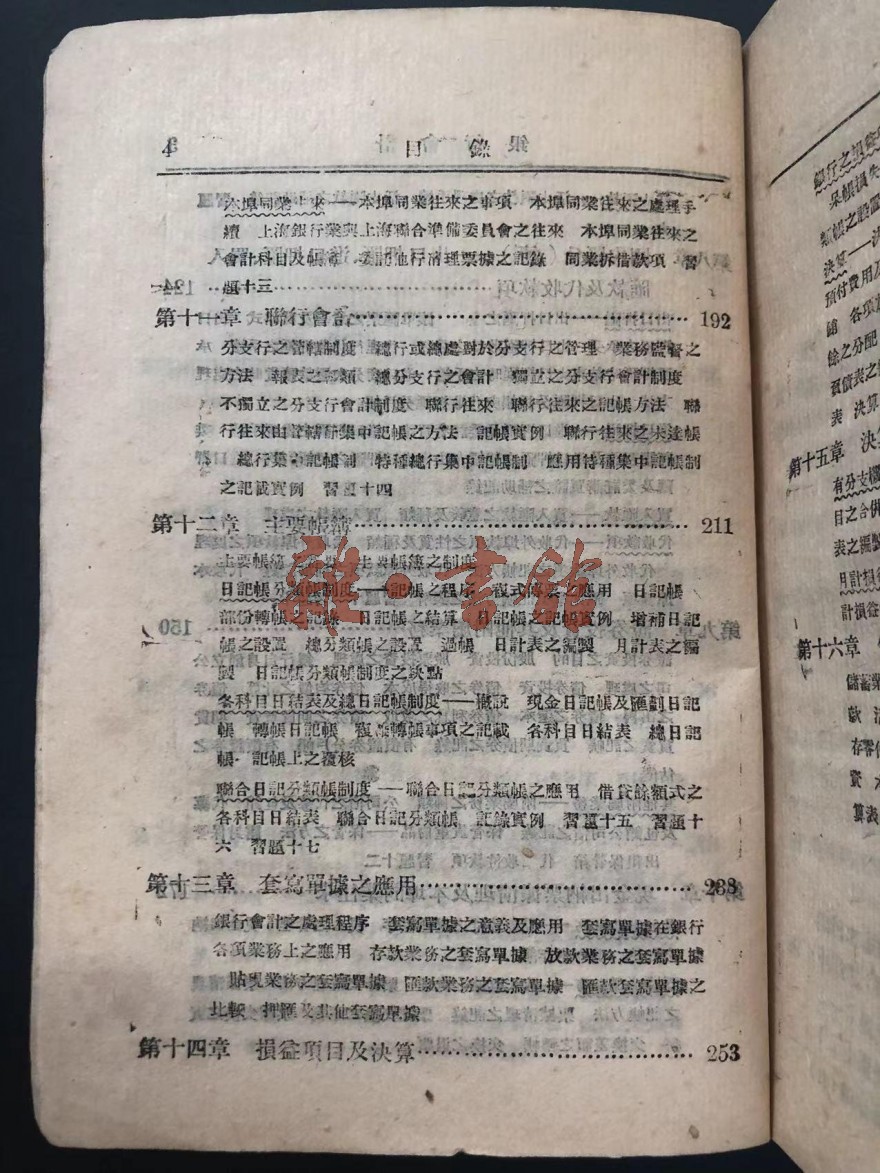 4 目錄
本埠同業往來——本埠同業往來之事項 本埠同業往來之處理手
續 上海銀行業與上海聯合準備委員會之往來 本埠同業往來之
會計科目及帳簿 委託他行清理票據之記錄 同業拆借款項 習
題十三
第十一章 聯行會計 192
分支行之管轄制度 總行或總處對於分支行之管理 業務監督之
方法 報表之種類 總分支行之會計 獨立之分支行會計制度
不獨立之分支行會計制度 聯行往來 聯行往來之記帳方法 聯
行往來由管轄行集中記帳之方法 記帳實例 聯行往來之未達帳
總行集中記帳制 特種總行集中記帳制 應用特種集中記帳制
之記載實例 習題十四
第十二章 主要帳簿 211
主要帳簿 主要帳簿之制度
日記帳分類帳制度——記帳之程序 程式 傳票之應用 日記帳
部份轉帳之記錄 日記帳之結算 日記帳之記帳實例 增補日記
帳之設置 總分類帳之設置 過帳 日計表之編製 月計表之編
製 日記帳分類帳制度之缺點
各科目日結表及總日記帳制度——概說 現金日記帳及匯劃日記
帳 轉帳日記帳 複雜轉帳事項之記載 各科目日結表 總日記
帳 記帳上之覆核
聯合日記分類帳制度——聯合日記分類帳之應用 借貸餘額式之
各科目日結表 聯合日記分類帳 記錄實例 習題十五 習題十
六 習題十七
第十三章 套寫單據之應用 238
銀行會計之處理程序 套寫單據之意義及應用 套寫單據在銀行
各項業務上之應用 存款業務之套寫單據 放款業務之套寫單據
貼現業務之套寫單據 匯款業務之套寫單據 匯款套寫單據之
比較 押匯及其他套寫單據
第十四章 損益項目及決算 253
雜·書館
銀行之損益
呆帳損失
類帳之設置
決算——決
預付費用及
餘之分配
表 決算
第十五章 決算
有分支機
目之合併
表之編製
月計損益
計損益
第十六章
儲蓄業
存零付